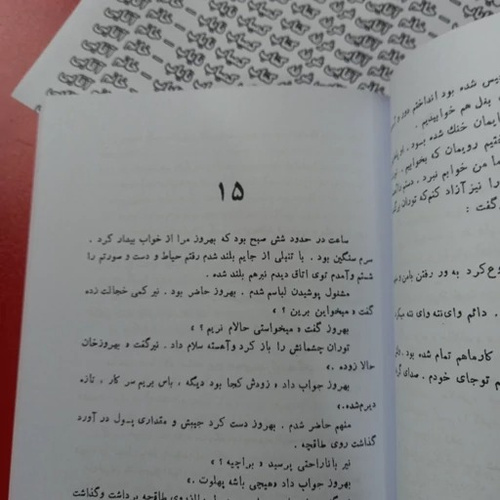 ۱۵
ساعت در حدود شش صبح بود که بهروز مرا از خواب بیدار کرد .
سرم سنگین بود . با تنبلی از جایم بلند شدم رفتم حیاط و دست و صورتم را
شستم وآمدم توی اتاق دیدم نیرهم بلند شده .
مشغول پوشیدن لباسم شدم . بهروز حاضر بود . نیر کمی خجالت زده
گفت « میخواین برین ؟ »
بهروز گفت « میخواستی حالام نریم ؟ »
توران چشمانش را باز کرد وآهسته سلام داد . نیرگفت « بهروزخان
حالا زوده .»
بهروز جواب داد « زودش کجا بود دیگه ، باس بریم سر کار ، تازه
دیرم‌شده.»
منهم حاضر شدم . بهروز دست کرد جیبش و مقداری پول در آورد
گذاشت روی طاقچه .
نیر باناراحتی پرسید « براچیه ؟ »
بهروز جواب داد «هیچی باشه پهلوت .»
طاقچه برداشت وگذاشت
یس شده بود انداختم دور و
بغل هم خوابیدیم .
یمان خنك شده بود .
تیم رویمان که بخوابیم .
ما من خوابم نبرد .
را نیز آزاد کنم‌که توران
گفت :
وع‌کرد به ور رفتن بامن و
. دائم وای‌ننه وای ننه
کارماهم تمام شده بود .
م توجای خودم . صدای